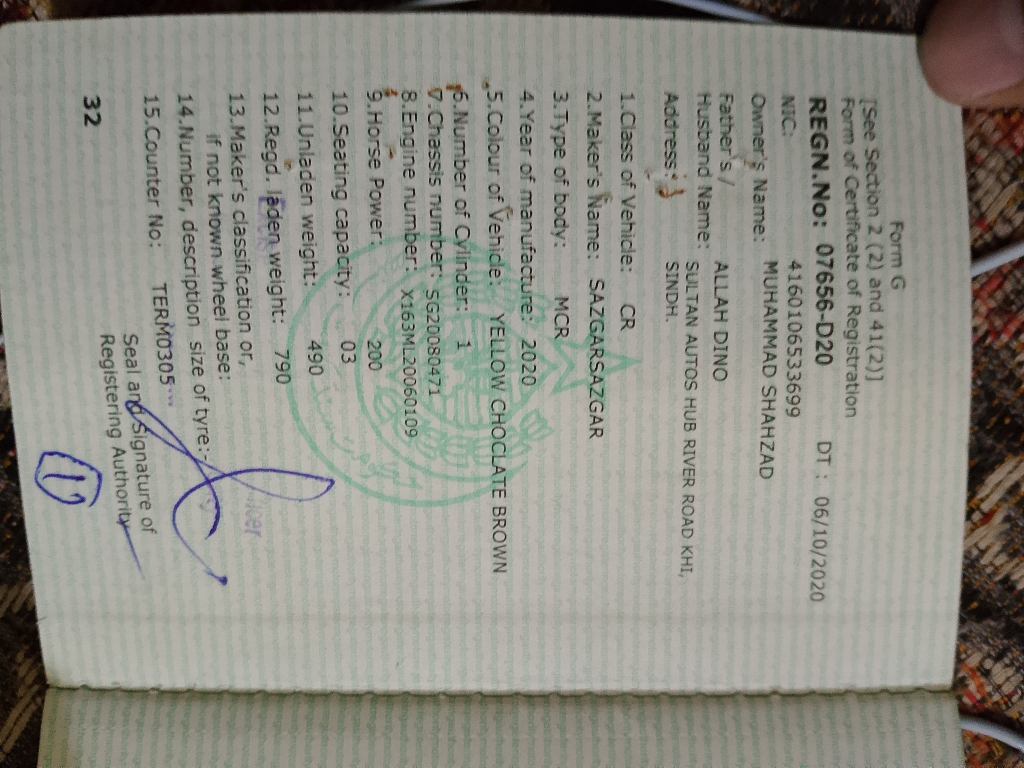 Form G
[See Section 2 (2) and 41(2)]
Form of Certificate of Registration
REGN.No: 07656-D20 DT : 06/10/2020
NIC: 4160106533699
Owner's Name: MUHAMMAD SHAHZAD
Father's /
Husband Name: ALLAH DINO
Address: SULTAN AUTOS HUB RIVER ROAD KHI,
SINDH.
1.Class of Vehicle: CR
2.Maker's Name: SAZGARSAZGAR
3.Type of body: MCR
4.Year of manufacture: 2020
5.Colour of Vehicle: YELLOW CHOCLATE BROWN
6.Number of Cylinder: 1
7.Chassis number: SG20080471
8.Engine number: X163ML20060109
9.Horse Power: 200
10.Seating capacity: 03
11.Unladen weight: 490
12.Regd. laden weight: 790
13.Maker's classification or,
if not known wheel base:
14.Number, description size of tyre:-
15.Counter No: TERM0305
Seal and Signature of
Registering Authority
32
11